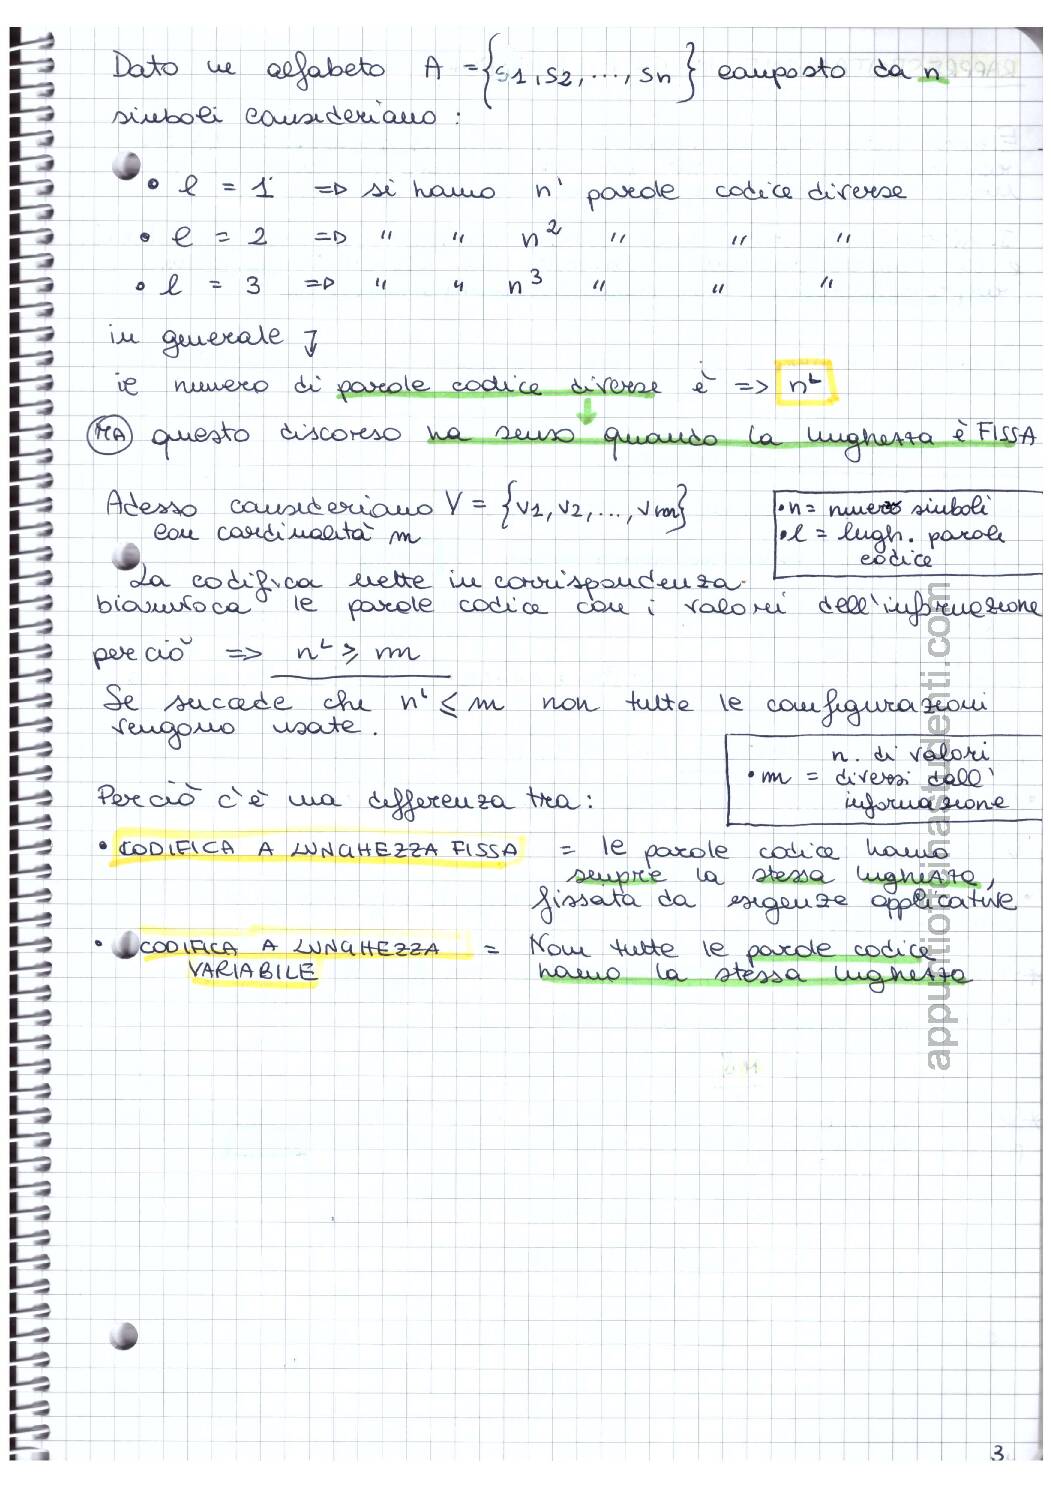 Dato un alfabeto A = {s1, s2, ..., sn} composto da n
simboli consideriamo :
• l = 1 => si hanno n¹ parole codice diverse
• l = 2 => " " n² " " "
• l = 3 => " " n³ " " "
in generale ↓
il numero di parole codice diverse è => nᴸ
MA questo discorso ha senso quando la lunghezza è FISSA
Adesso consideriamo V = {v1, v2, ..., vm}
con cardinalità m
• n = numero simboli
• l = lugh. parole
codice
La codifica mette in corrispondenza
biunivoca le parole codice con i valori dell'informazione
perciò => nᴸ ≥ m
Se succede che nᴸ ≤ m non tutte le configurazioni
vengono usate.
n. di valori
• m = diversi dell'
informazione
Perciò c'è una differenza tra :
• CODIFICA A LUNGHEZZA FISSA = le parole codice hanno
sempre la stessa lughezza,
fissata da esigenze applicative
• CODIFICA A LUNGHEZZA = Non tutte le parole codice
VARIABILE hanno la stessa lughezza
appuntiofficinastudenti.com
3